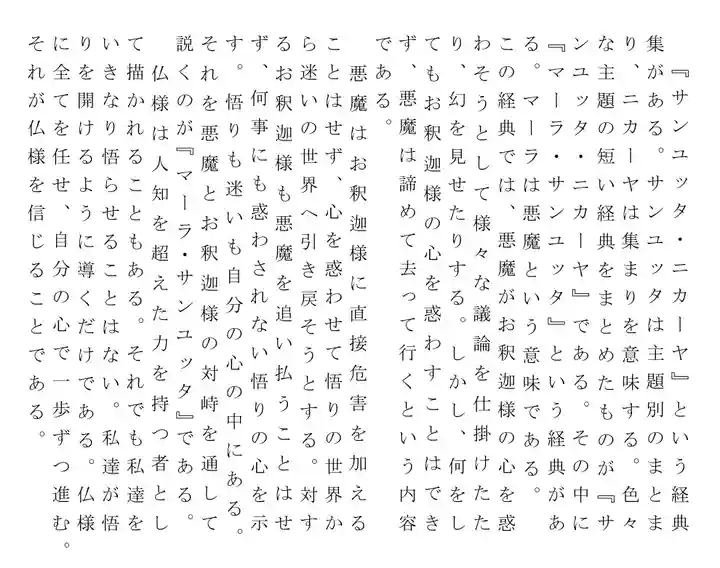 『サンユッタ・ニカーヤ』という経典
集がある。サンユッタは主題別のまとま
り、ニカーヤは集まりを意味する。色々
な主題の短い経典をまとめたものが『サ
ンユッタ・ニカーヤ』である。その中に
『マーラ・サンユッタ』という経典があ
る。マーラは悪魔という意味である。
この経典では、悪魔がお釈迦様の心を惑
わそうとして様々な議論を仕掛けたた
り、幻を見せたりする。しかし、何をし
てもお釈迦様の心を惑わすことはでき
ず、悪魔は諦めて去って行くという内容
である。
悪魔はお釈迦様に直接危害を加える
ことはせず、心を惑わせて悟りの世界か
ら迷いの世界へ引き戻そうとする。対す
るお釈迦様も悪魔を追い払うことはせ
ず、何事にも惑わされない悟りの心を示
す。悟りも迷いも自分の心の中にある。
それを悪魔とお釈迦様の対峙を通して
説くのが『マーラ・サンユッタ』である。
仏様は人知を超えた力を持つ者とし
て描かれることもある。それでも私達を
いきなり悟らせることはない。私達が悟
りを開けるように導くだけである。仏様
に全てを任せ、自分の心で一歩ずつ進む。
それが仏様を信じることである。